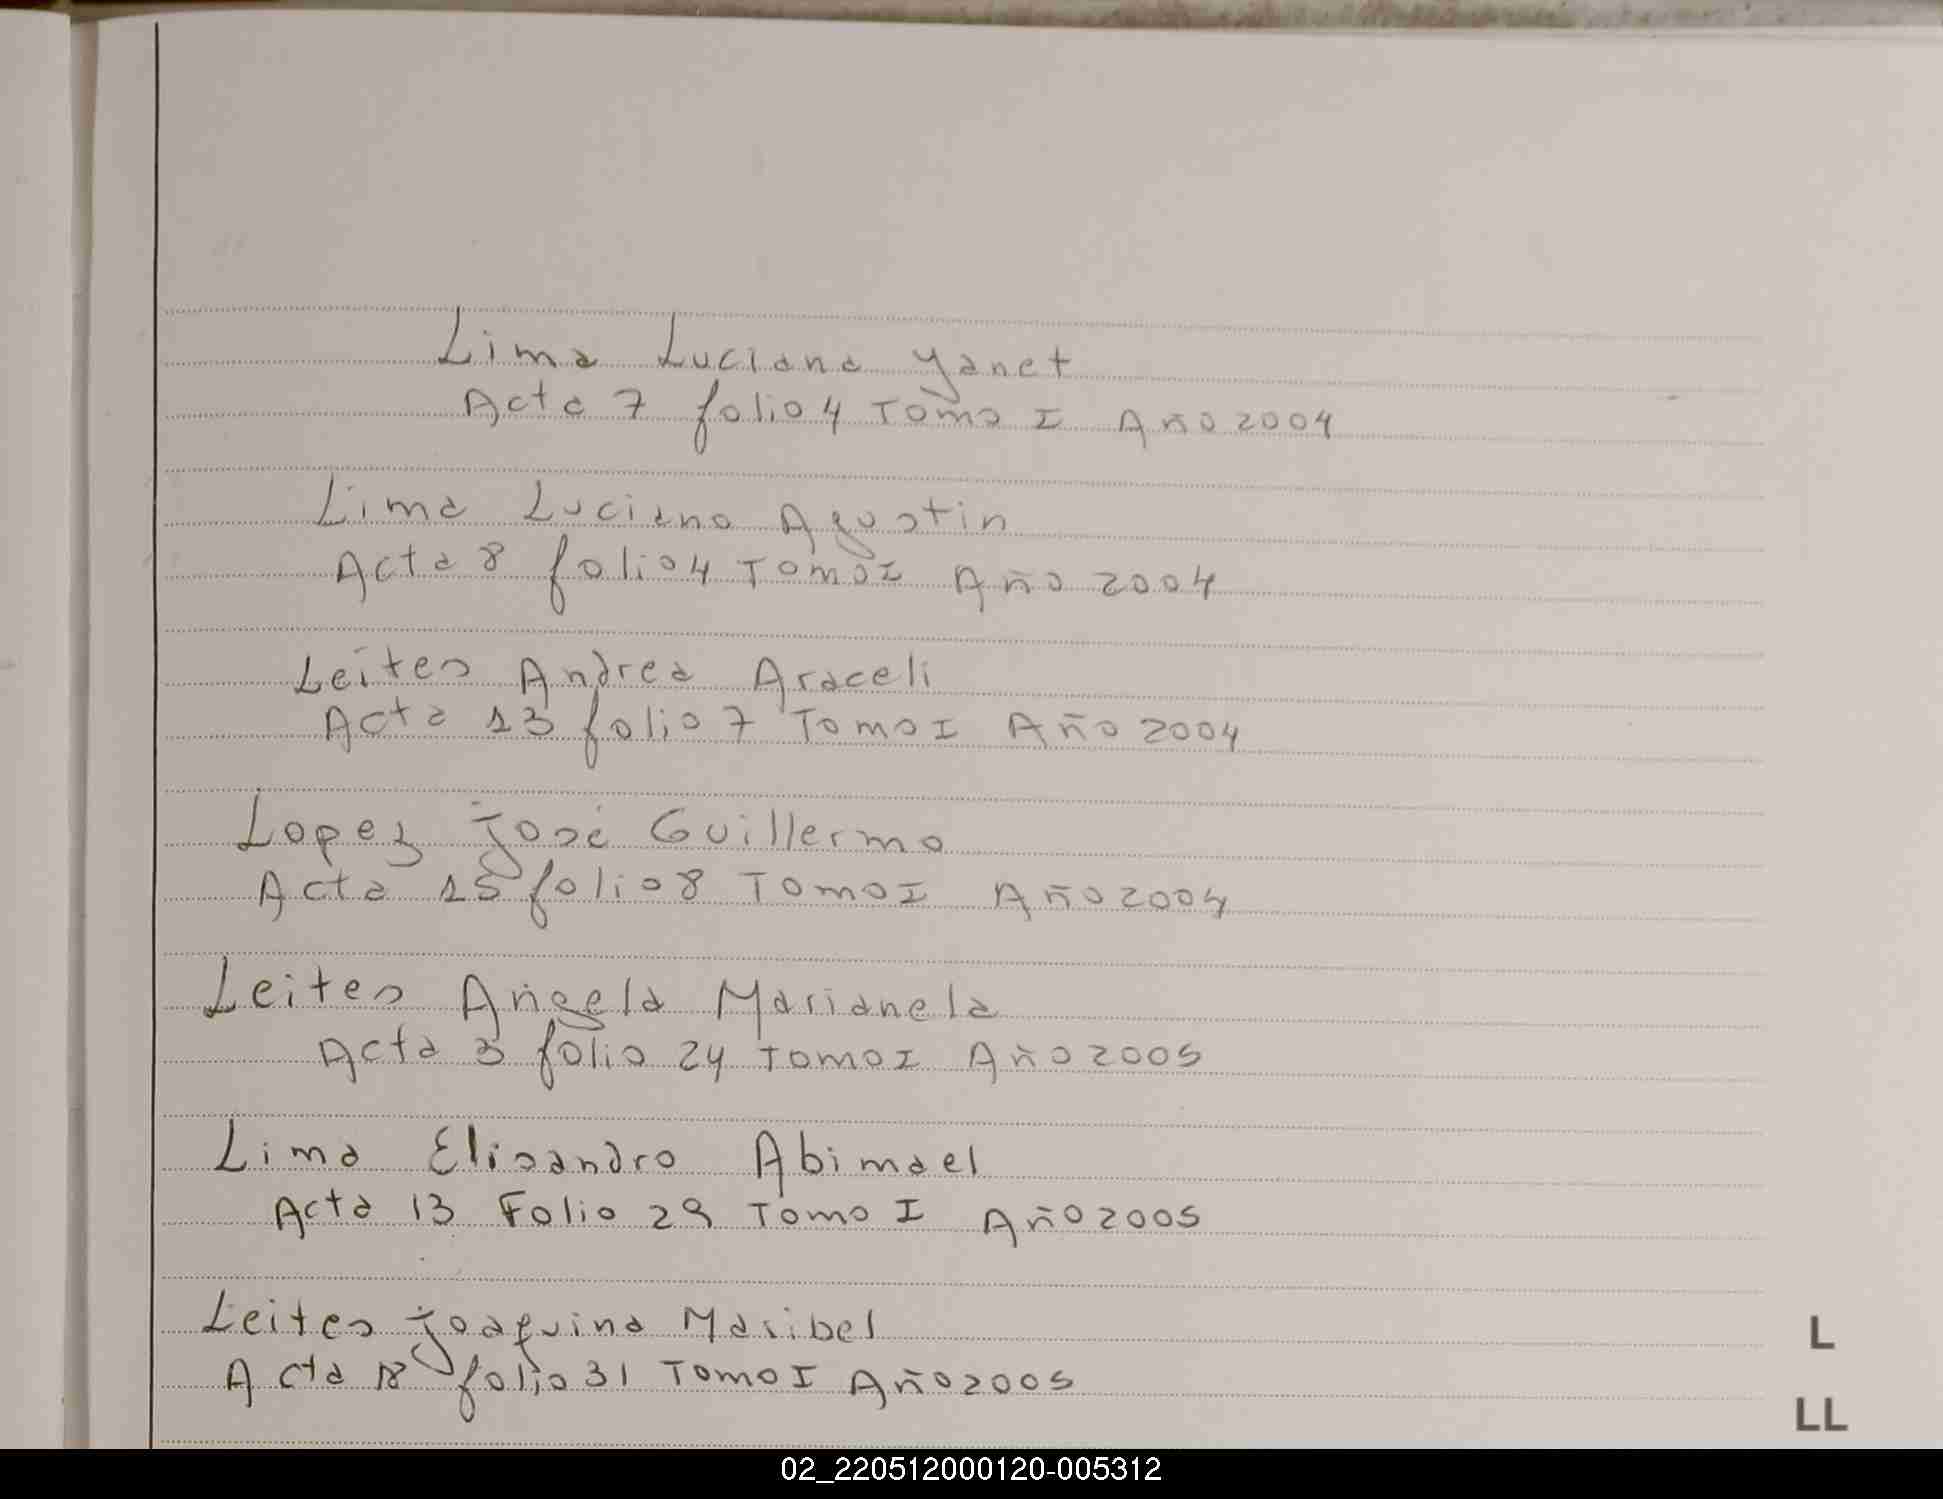 Lima Luciana Yanet
Acta 7 folio 4 Tomo I Año 2004
Lima Luciano Agustin
Acta 8 folio 4 Tomo I Año 2004
Leites Andrea Araceli
Acta 13 folio 7 Tomo I Año 2004
Lopez José Guillermo
Acta 15 folio 8 Tomo I Año 2004
Leites Angela Marianela
Acta 3 folio 24 Tomo I Año 2005
Lima Elisandro Abimael
Acta 13 Folio 29 Tomo I Año 2005
Leites Joaquina Maribel
Acta 18 folio 31 Tomo I Año 2005
L
LL
02_220512000120-005312